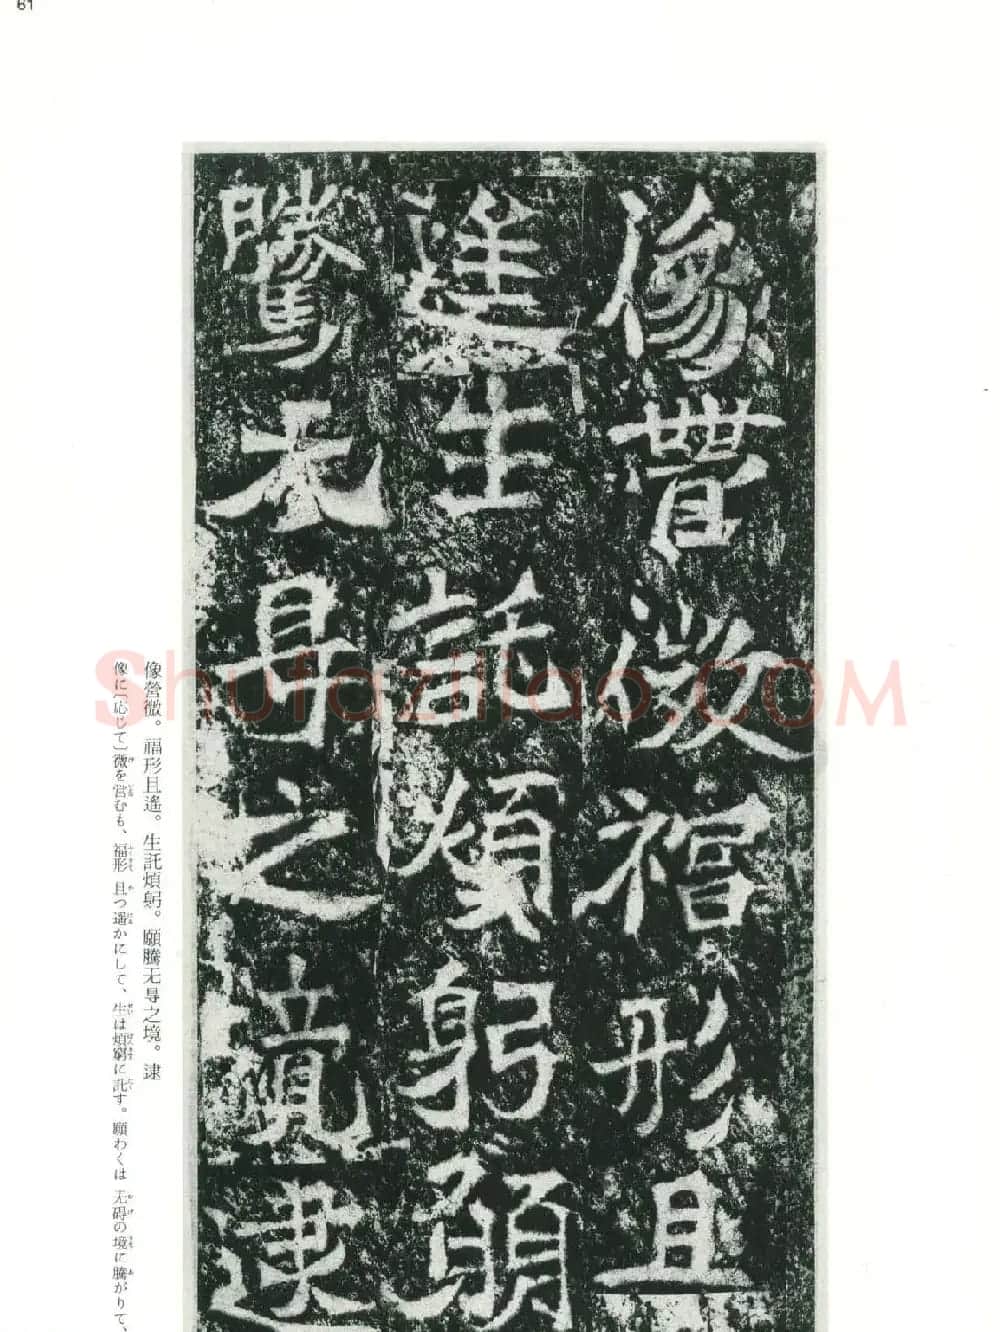 61
像營微福形且
遙生託煩躬願
騰无㝵之境逮
像營微。福形且遙。生託煩躬。願騰无㝵之境。逮
像に〔応じて〕微を営むも、福形且つ遥かにして、生は煩窮に託す。願わくは无碍の境に騰がりて、
Shufaziliao.COM